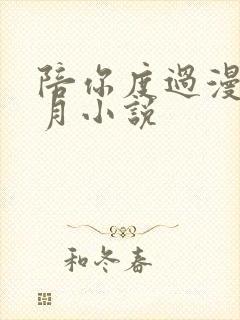 陪你度過漫
月小說
和冬春